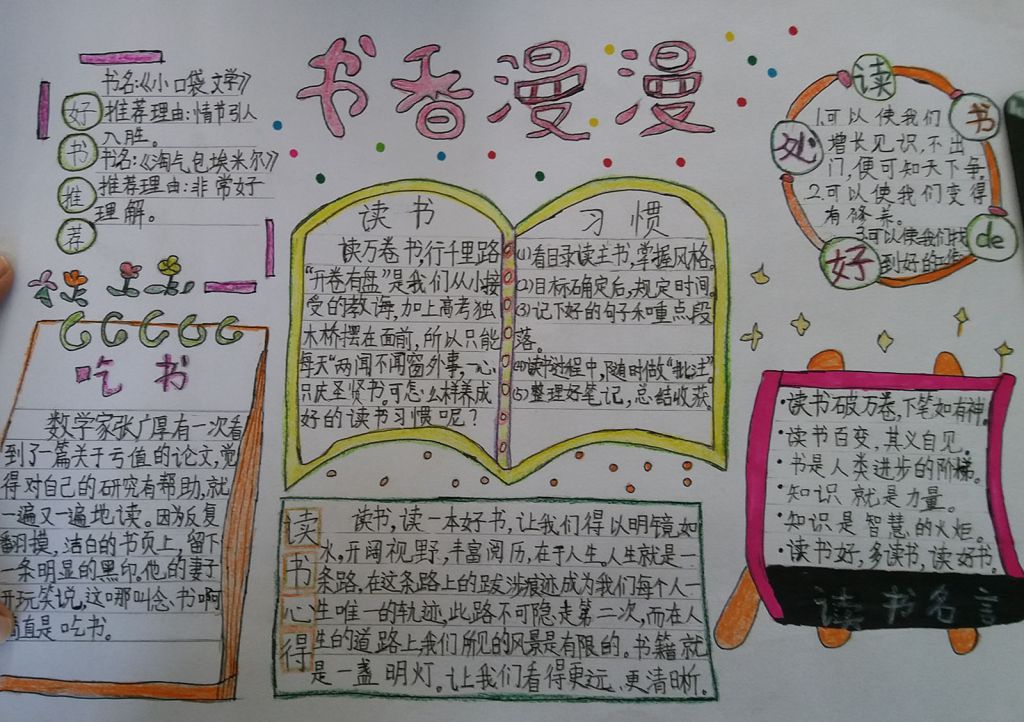 书香漫漫
好书推荐
书名:《小口袋文学》
推荐理由:情节引人
入胜。
书名:《淘气包埃米尔》
推荐理由:非常好
理解。
读书 习惯
读万卷书,行千里路
“开卷有盘”是我们从小接
受的教诲,加上高考独
木桥摆在面前,所以只能
每天“两闻不闻窗外事,一心
只庆圣贤书。可怎么样养成
好的读书习惯呢?
(1)看目录读主书,掌握风格。
(2)目标确定后,规定时间。
(3)记下好的句子和重点段
落。
(4)读书过程中,随时做“批注”
(5)整理好笔记,总结收获。
读书de好处
1.可以使我们
增长见识,不出
门,便可知天下争,
2.可以使我们变得
有修养。
3.可以使我们找
到好的工作
吃书
数学家张广厚有一次看
到了一篇关于亏值的论文,觉
得对自己的研究有帮助,就
一遍又一遍地读。因为反复
翻摸,洁白的书页上,留下
一条明显的黑印。他的妻子
开玩笑说,这哪叫念书啊
简直是吃书。
读书心得
读书,读一本好书,让我们得以明镜如
水。开阔视野,丰富阅历,在于人生。人生就是一
条路,在这条路上的跋涉痕迹成为我们每个人一
生唯一的轨迹,此路不可隐走第二次,而在人
生的道路上我们所见的风景是有限的。书籍就
是一盏明灯。让我们看得更远、更清晰。
•读书破万卷,下笔如有神。
•读书百变,其义自见。
•书是人类进步的阶梯。
•知识就是力量。
•知识是智慧的火炬。
•读书好,多读书,读好书。
读书名言